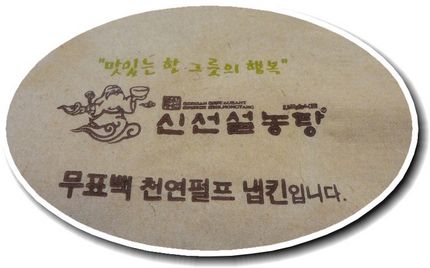 "맛있는 한 그릇의 행복"
KOREAN RESTAURANT
신선설농탕
무표백 천연펄프 냅킨입니다.